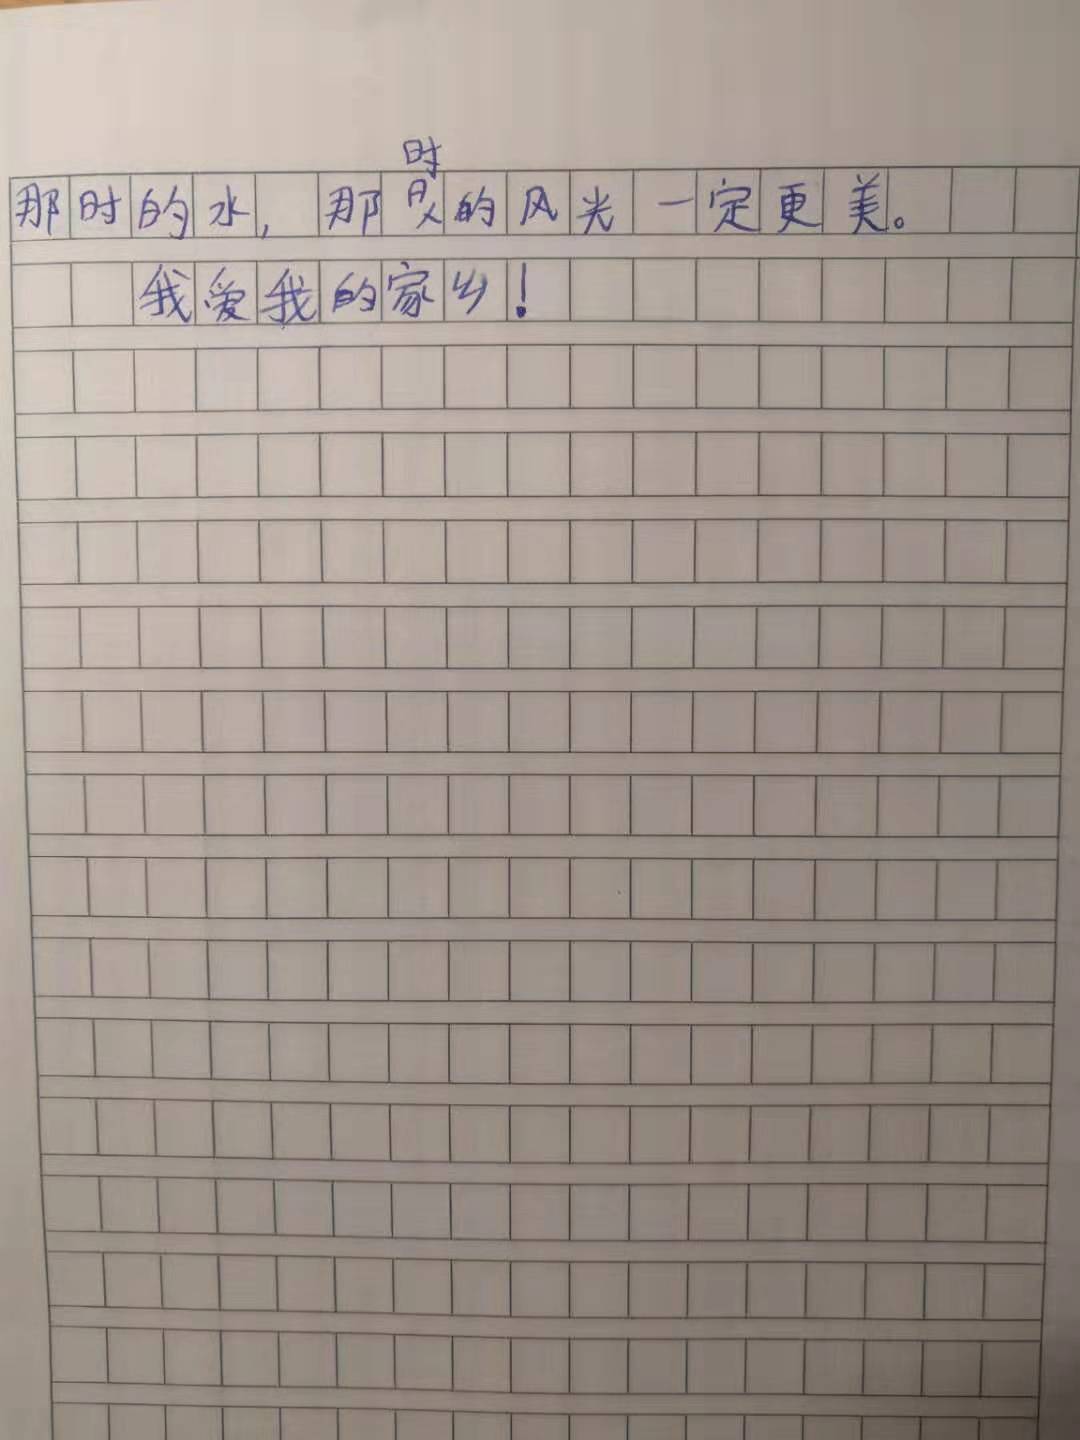 那时的水，那时的风光一定更美。
我爱我的家乡！